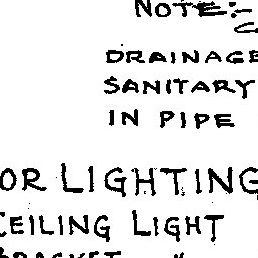 NOTE:-
DRAINAGE
SANITARY
IN PIPE
OR LIGHTING
CEILING LIGHT
BRACKET "